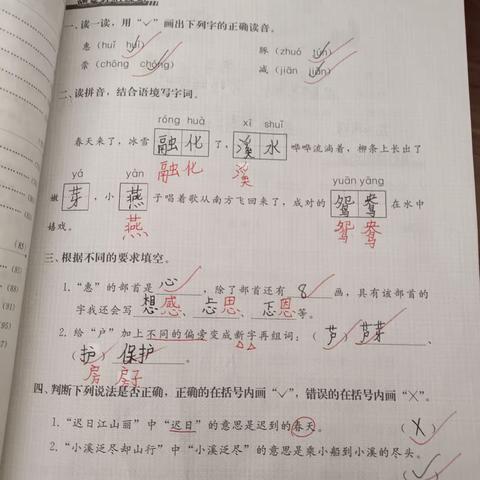 一、读一读，用“✓”画出下列字的正确读音。
惠（huǐ huì） 豚（zhuó tún）
崇（chōng chóng） 减（jiān jiǎn）
二、读拼音，结合语境写字词。
róng huà xī shuǐ
春天来了，冰雪 融化 了，溪水 哗哗流淌着，柳条上长出了
融化 溪
yá yàn yuān yāng
嫩 芽 ，小 燕 子唱着歌从南方飞回来了，成对的 鸳鸯 在水中
燕 鸳鸯
嬉戏。
三、根据不同的要求填空。
1.“惠”的部首是 心 ，除了部首还有 8 画，具有该部首的
字我还会写 想感、忘思、恋恩 等。
2.给“户”加上不同的偏旁变成新字再组词：（芦）芦芽、
（护）保护。
房 房子
四、判断下列说法是否正确，正确的在括号内画“✓”，错误的在括号内画“×”。
1.“迟日江山丽”中“迟日”的意思是迟到的春天。 （×）
2.“小溪泛尽却山行”中“小溪泛尽”的意思是乘小船到小溪的尽头。
（✓）
(85)
(88)
(91)
(95)
(97)